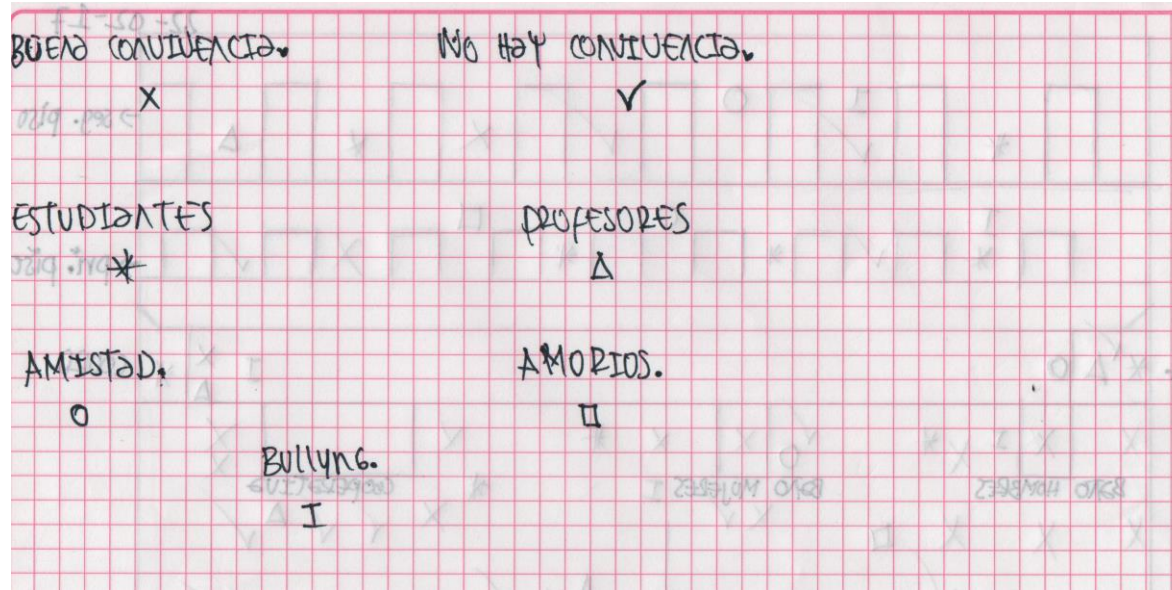 BUENA CONVIVENCIA. NO HAY CONVIVENCIA.
X ✓
ESTUDIANTES PROFESORES
* Δ
AMISTAD. AMORIOS.
O □
BULLYNG.
I